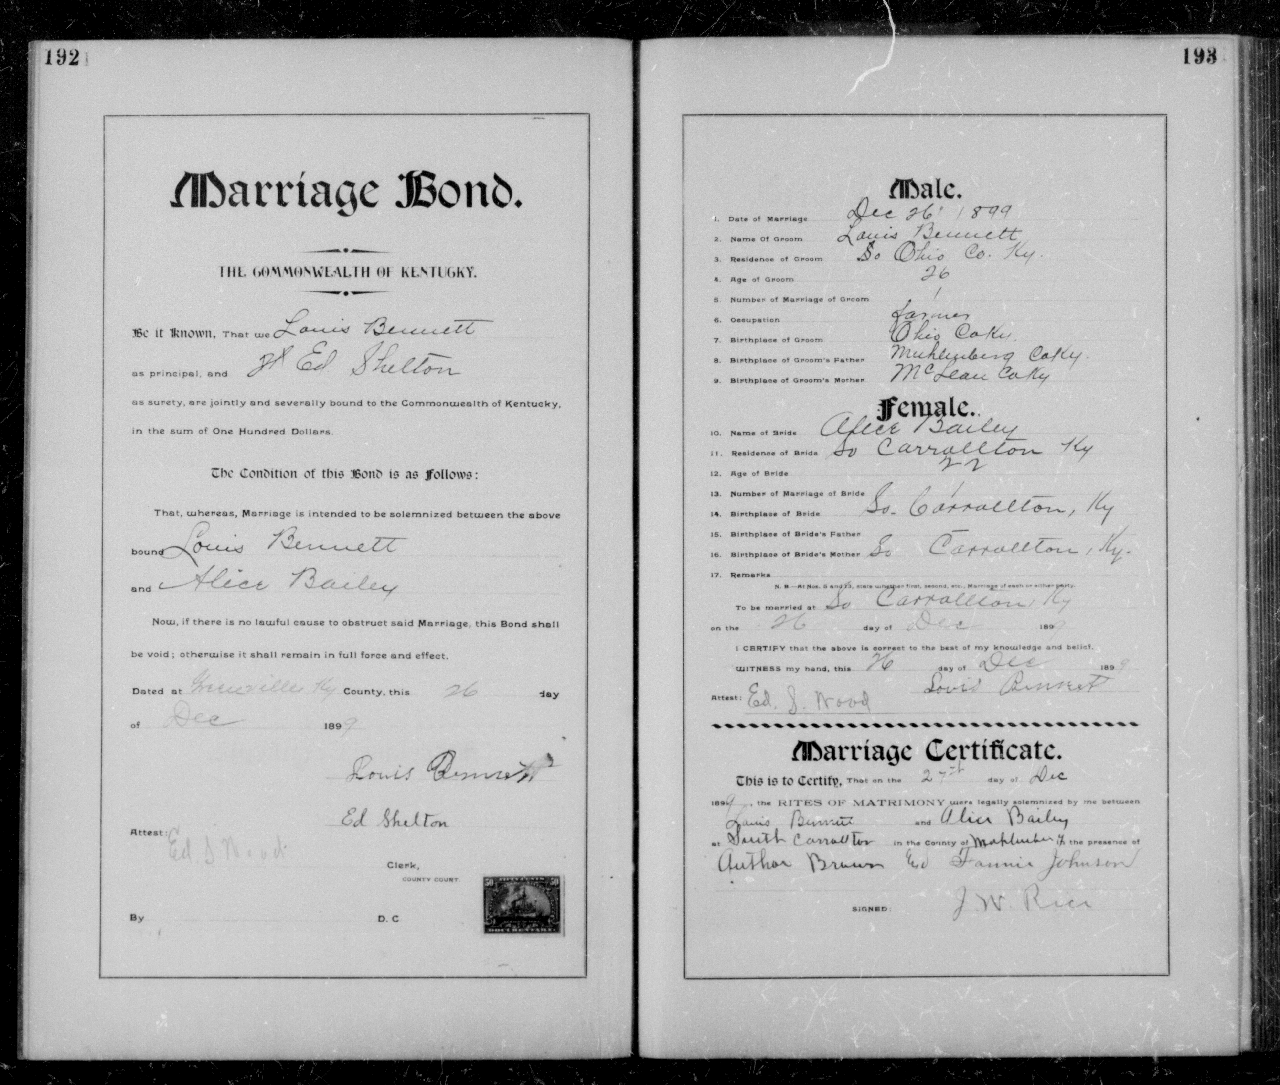 192
Marriage Bond.
THE COMMONWEALTH OF KENTUCKY.
Be it Known, That we Louis Bennett
as principal, and Ed Shelton
as surety, are jointly and severally bound to the Commonwealth of Kentucky,
in the sum of One Hundred Dollars.
The Condition of this Bond is as Follows:
That, whereas, Marriage is intended to be solemnized between the above
bound Louis Bennett
and Alice Bailey
Now, if there is no lawful cause to obstruct said Marriage, this Bond shall
be void; otherwise it shall remain in full force and effect.
Dated at Greenville Ky County, this 26 day
of Dec 1899
Louis Bennett
Ed Shelton
Attest: Ed S Wood
Clerk,
COUNTY COURT.
By D. C
50 50
DOCUMENTARY.
193
Male.
1. Date of Marriage Dec 26 1899
2. Name Of Groom Louis Bennett
3. Residence of Groom So Ohio Co. Ky.
4. Age of Groom 26
5. Number of Marriage of Groom 1
6. Occupation farmer
7. Birthplace of Groom Ohio Co Ky.
8. Birthplace of Groom's Father Muhlenberg Co Ky.
9. Birthplace of Groom's Mother McLean Co Ky
Female.
10. Name of Bride Alice Bailey
11. Residence of Bride So Carrollton Ky
12. Age of Bride 22
13. Number of Marriage of Bride 1
14. Birthplace of Bride So. Carrollton, Ky
15. Birthplace of Bride's Father
16. Birthplace of Bride's Mother So Carrollton, Ky.
17. Remarks
N. B.—At Nos. 5 and 13, state whether first, second, etc., Marriage of each or either party.
To be married at So Carrollton, Ky
on the 26 day of Dec 1899
I CERTIFY that the above is correct to the best of my knowledge and belief.
WITNESS my hand, this 26 day of Dec 1899
Lovis Bennett
Attest: Ed. S. Wood
Marriage Certificate.
This is to Certify, That on the 27st day of Dec
1899, the RITES OF MATRIMONY were legally solemnized by me between
Louis Bennett and Alice Bailey
at South Carrollton in the County of the presence of
Author Brown Ed Fannie Johnson
SIGNED: J W. Rice